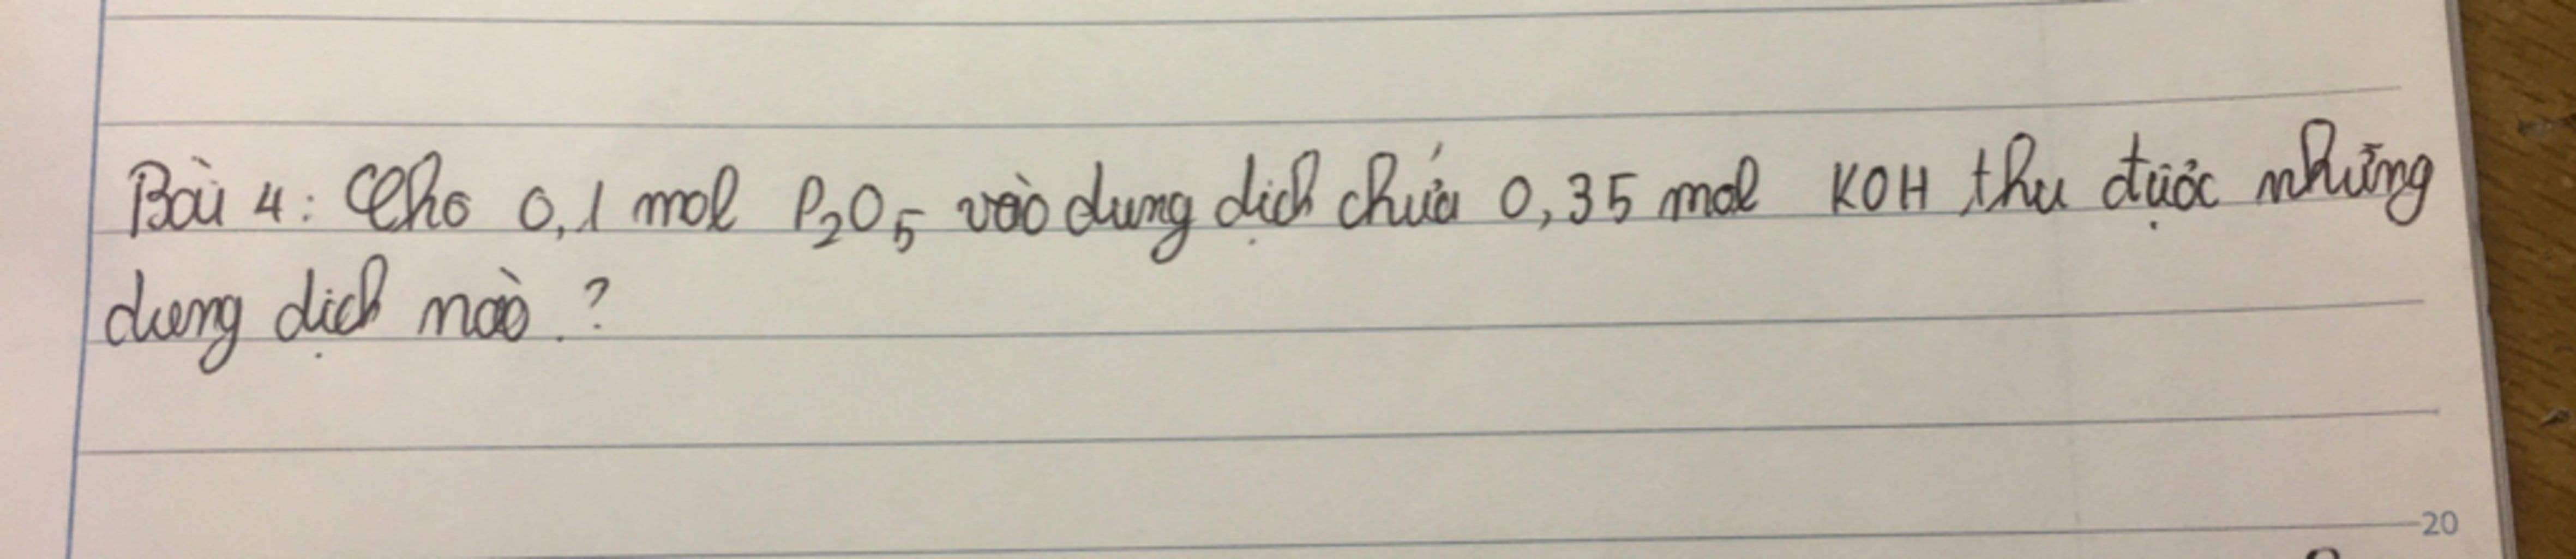 Bài 4: Cho 0,1 mol P₂O₅ vào dung dịch chứa 0,35 mol KOH thu được những
dung dịch nào ?
20